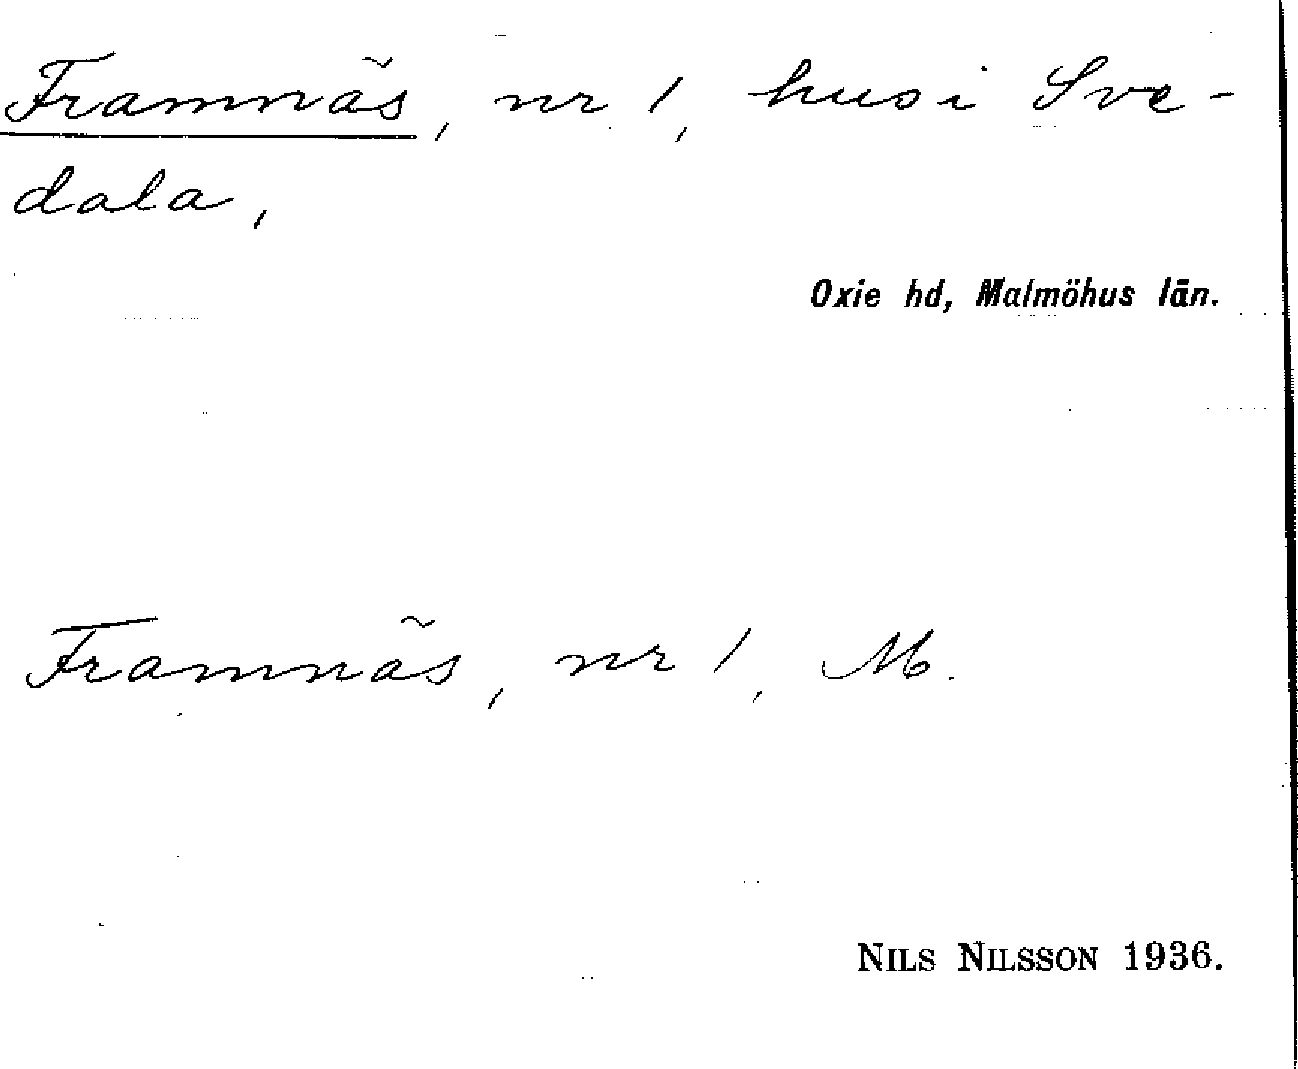 Framnäs, nr 1, hus i Sve-
dala,
Oxie hd, Malmöhus län.
Framnäs, nr 1, M.
NILS NILSSON 1936.